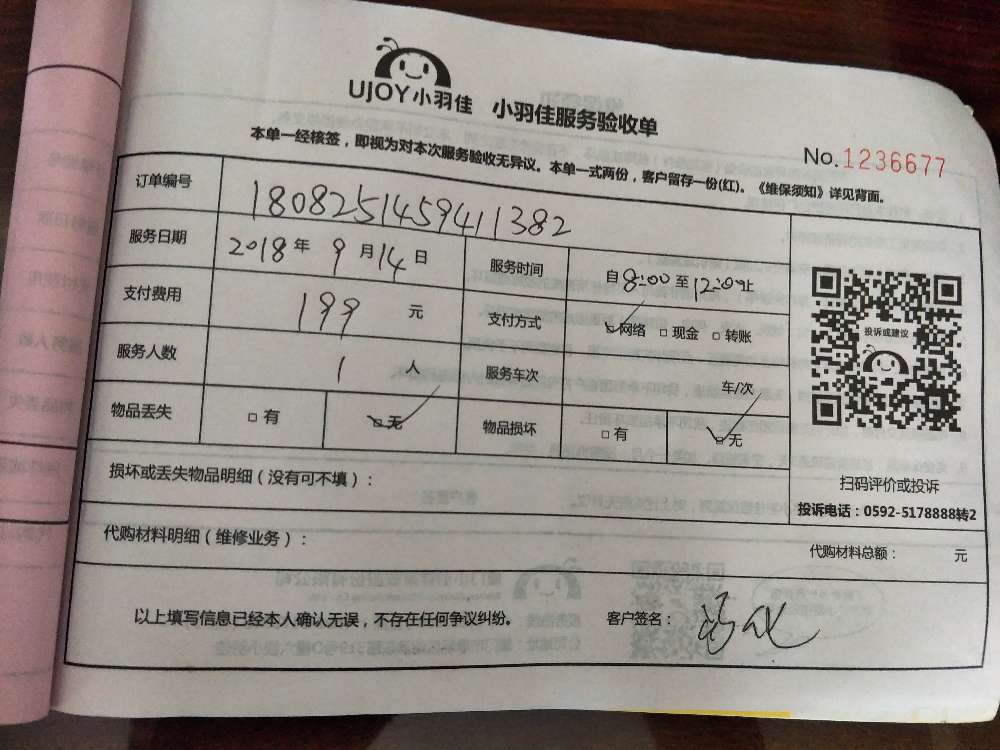 UJOY小羽佳 小羽佳服务验收单
No.1236677
本单一经核签，即视为对本次服务验收无异议。本单一式两份，客户留存一份(红)。《维保须知》详见背面。
订单编号 1808251459411382
服务日期 2018年9月14日 服务时间 自8:00至12:00止
支付费用 199 元 支付方式 ☑网络 □现金 □转账
服务人数 1 人 服务车次 车/次
物品丢失 □有 ☑无 物品损坏 □有 ☑无
投诉或建议
扫码评价或投诉
投诉电话：0592-5178888转2
损坏或丢失物品明细（没有可不填）：
代购材料明细（维修业务）：
代购材料总额： 元
以上填写信息已经本人确认无误，不存在任何争议纠纷。 客户签名：